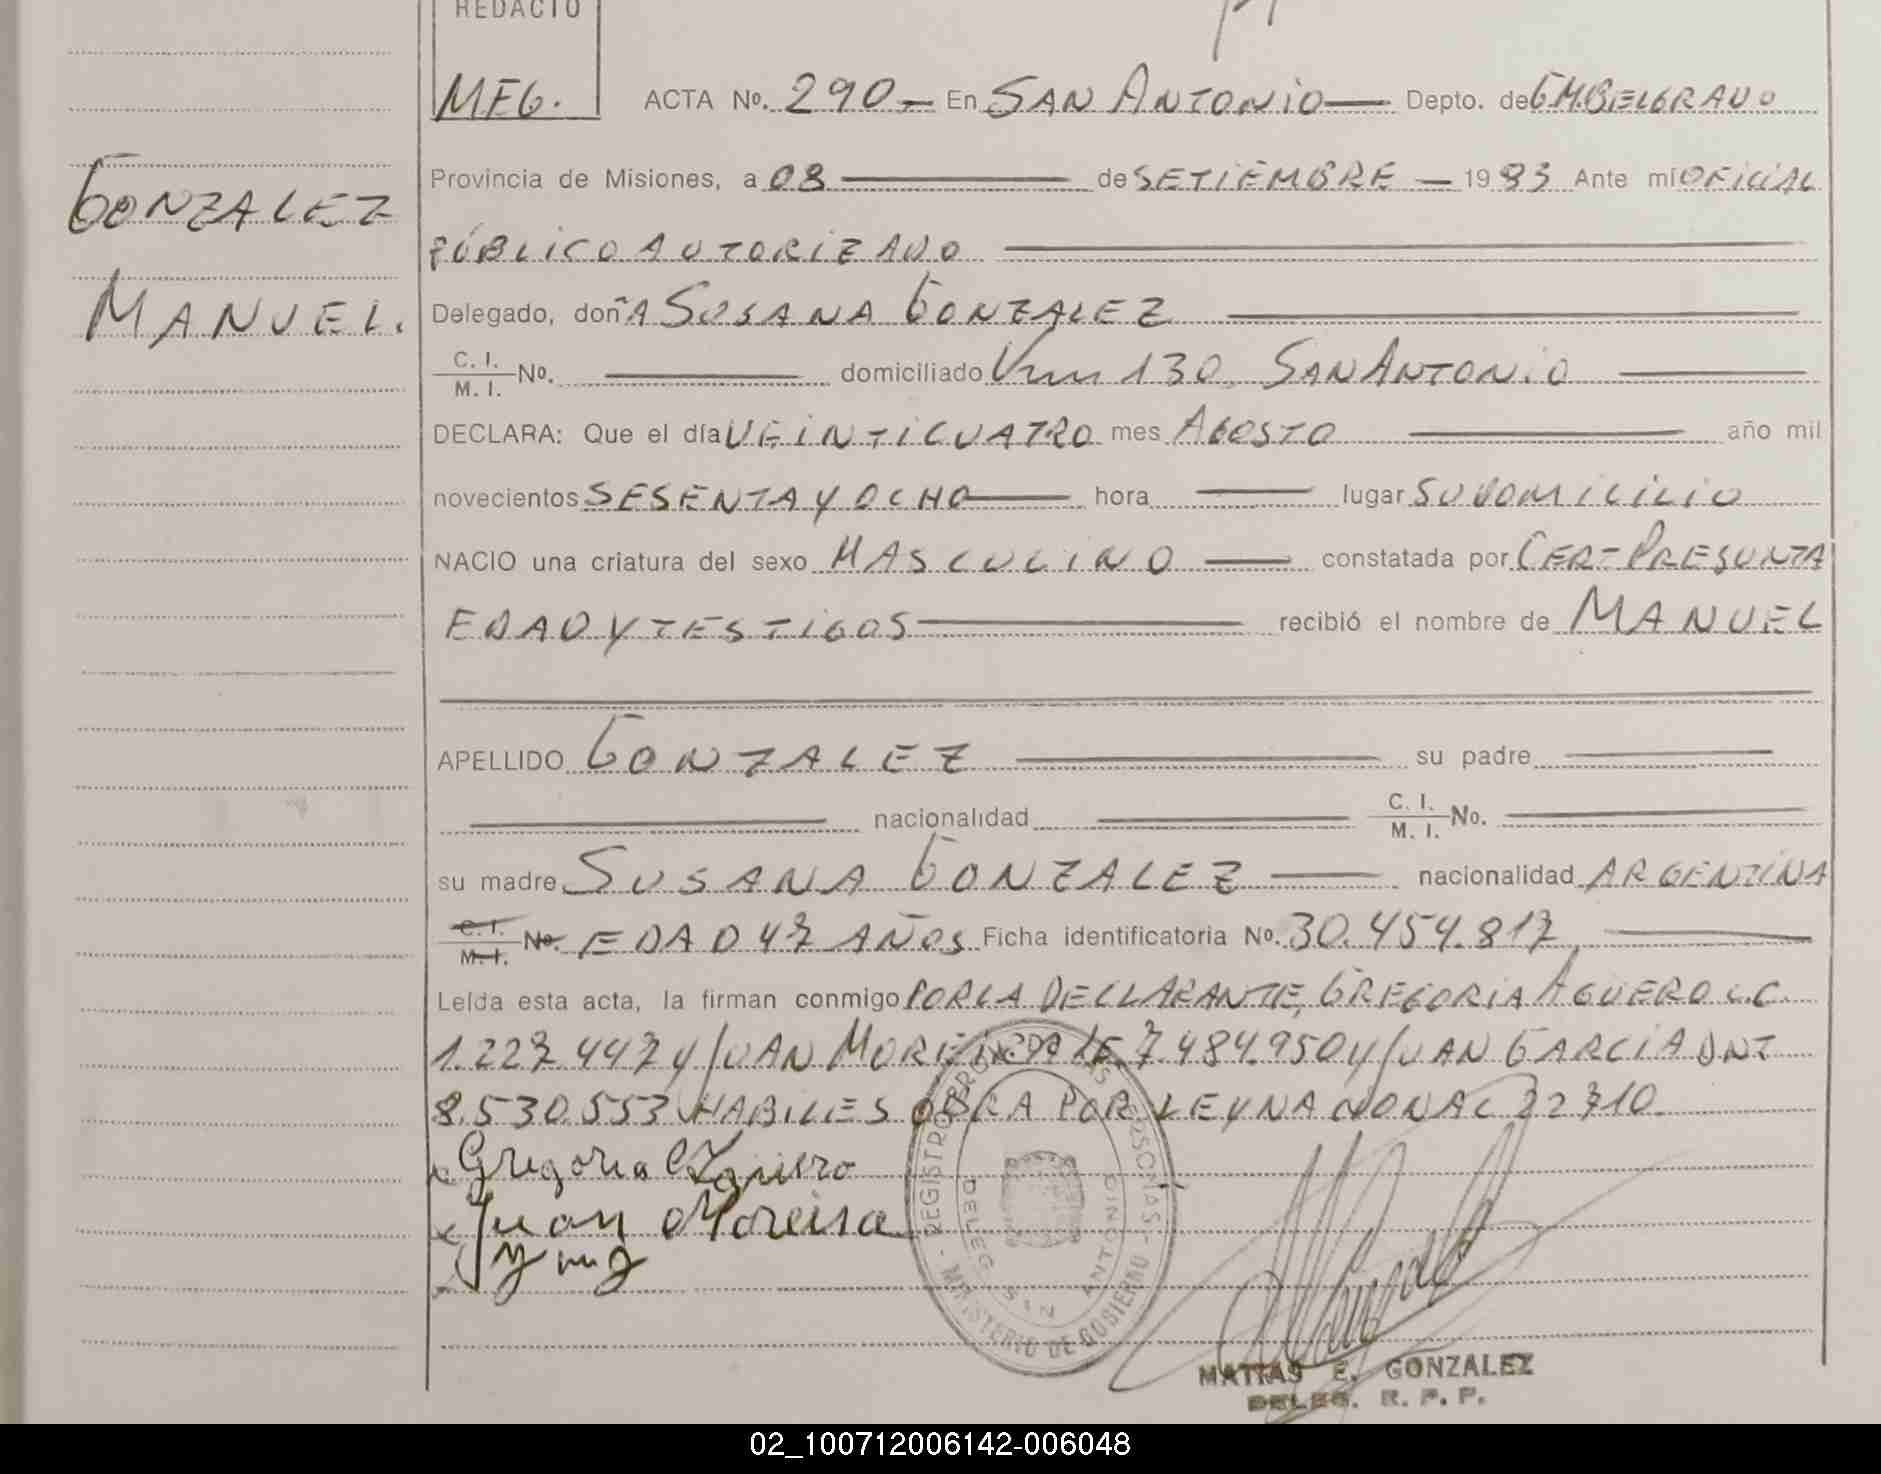 REDACTO
MEG.
ACTA No. 290.- En SAN ANTONIO — Depto. de GM.BELGRANO
GONZALEZ
MANUEL.
Provincia de Misiones, a 08 — de SETIEMBRE — 1993 Ante mí OFICIAL
PÚBLICO AUTORIZADO
Delegado, doñA SUSANA GONZALEZ
C. I. / M. I. No. — domiciliado Km 130, SAN ANTONIO
DECLARA: Que el día VEINTICUATRO mes AGOSTO — año mil
novecientos SESENTA Y OCHO — hora — lugar SU DOMICILIO
NACIO una criatura del sexo MASCULINO — constatada por CER-PRESUNTA
EDAD Y TESTIGOS — recibió el nombre de MANUEL
APELLIDO GONZALEZ — su padre —
— nacionalidad — C. I. / M. I. No. —
su madre SUSANA GONZALEZ — nacionalidad ARGENTINA
C. I. / M. I. No. EDAD 47 AÑOS Ficha identificatoria No. 30.454.817
Leída esta acta, la firman conmigo POR LA DECLARANTE, GREGORIA AGUERO L.C.
1.227.447 y JUAN MOREIRA LE 7.484.950 y JUAN GARCIA DNI
8.530.553 HABILES OBRA POR LEY NACIONAL 22710.
x Gregoria Aguero
x Juan Moreira
REGISTRO PROV. DE LAS PERSONAS - MINISTERIO DE GOBIERNO
DELEG. SAN ANTONIO
MATIAS E. GONZALEZ
DELEG. R. P. P.
02_100712006142-006048